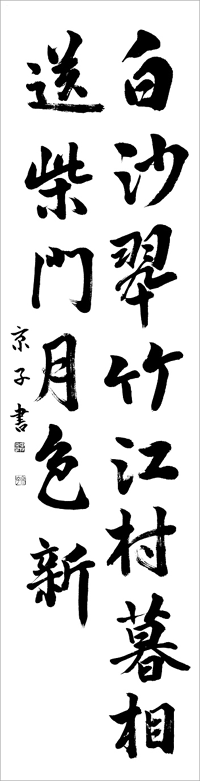 白沙翠竹江村暮相
送柴門月色新
京子書